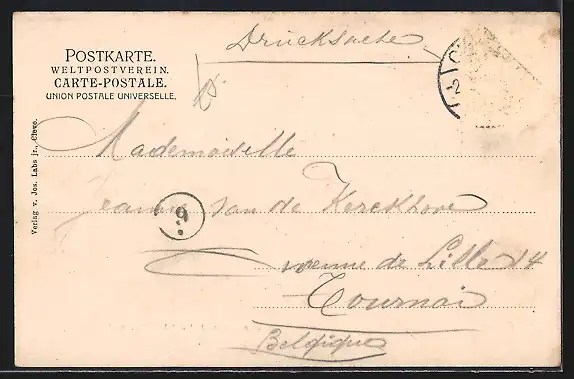 Drucksache
POSTKARTE.
WELTPOSTVEREIN.
CARTE-POSTALE.
UNION POSTALE UNIVERSELLE.
Verlag v. Jos. Labs jr., Cleve.
Mademoiselle
Jeanne van de Kerckhove
9
Avenue de Lille 14
Tournai
Belgique